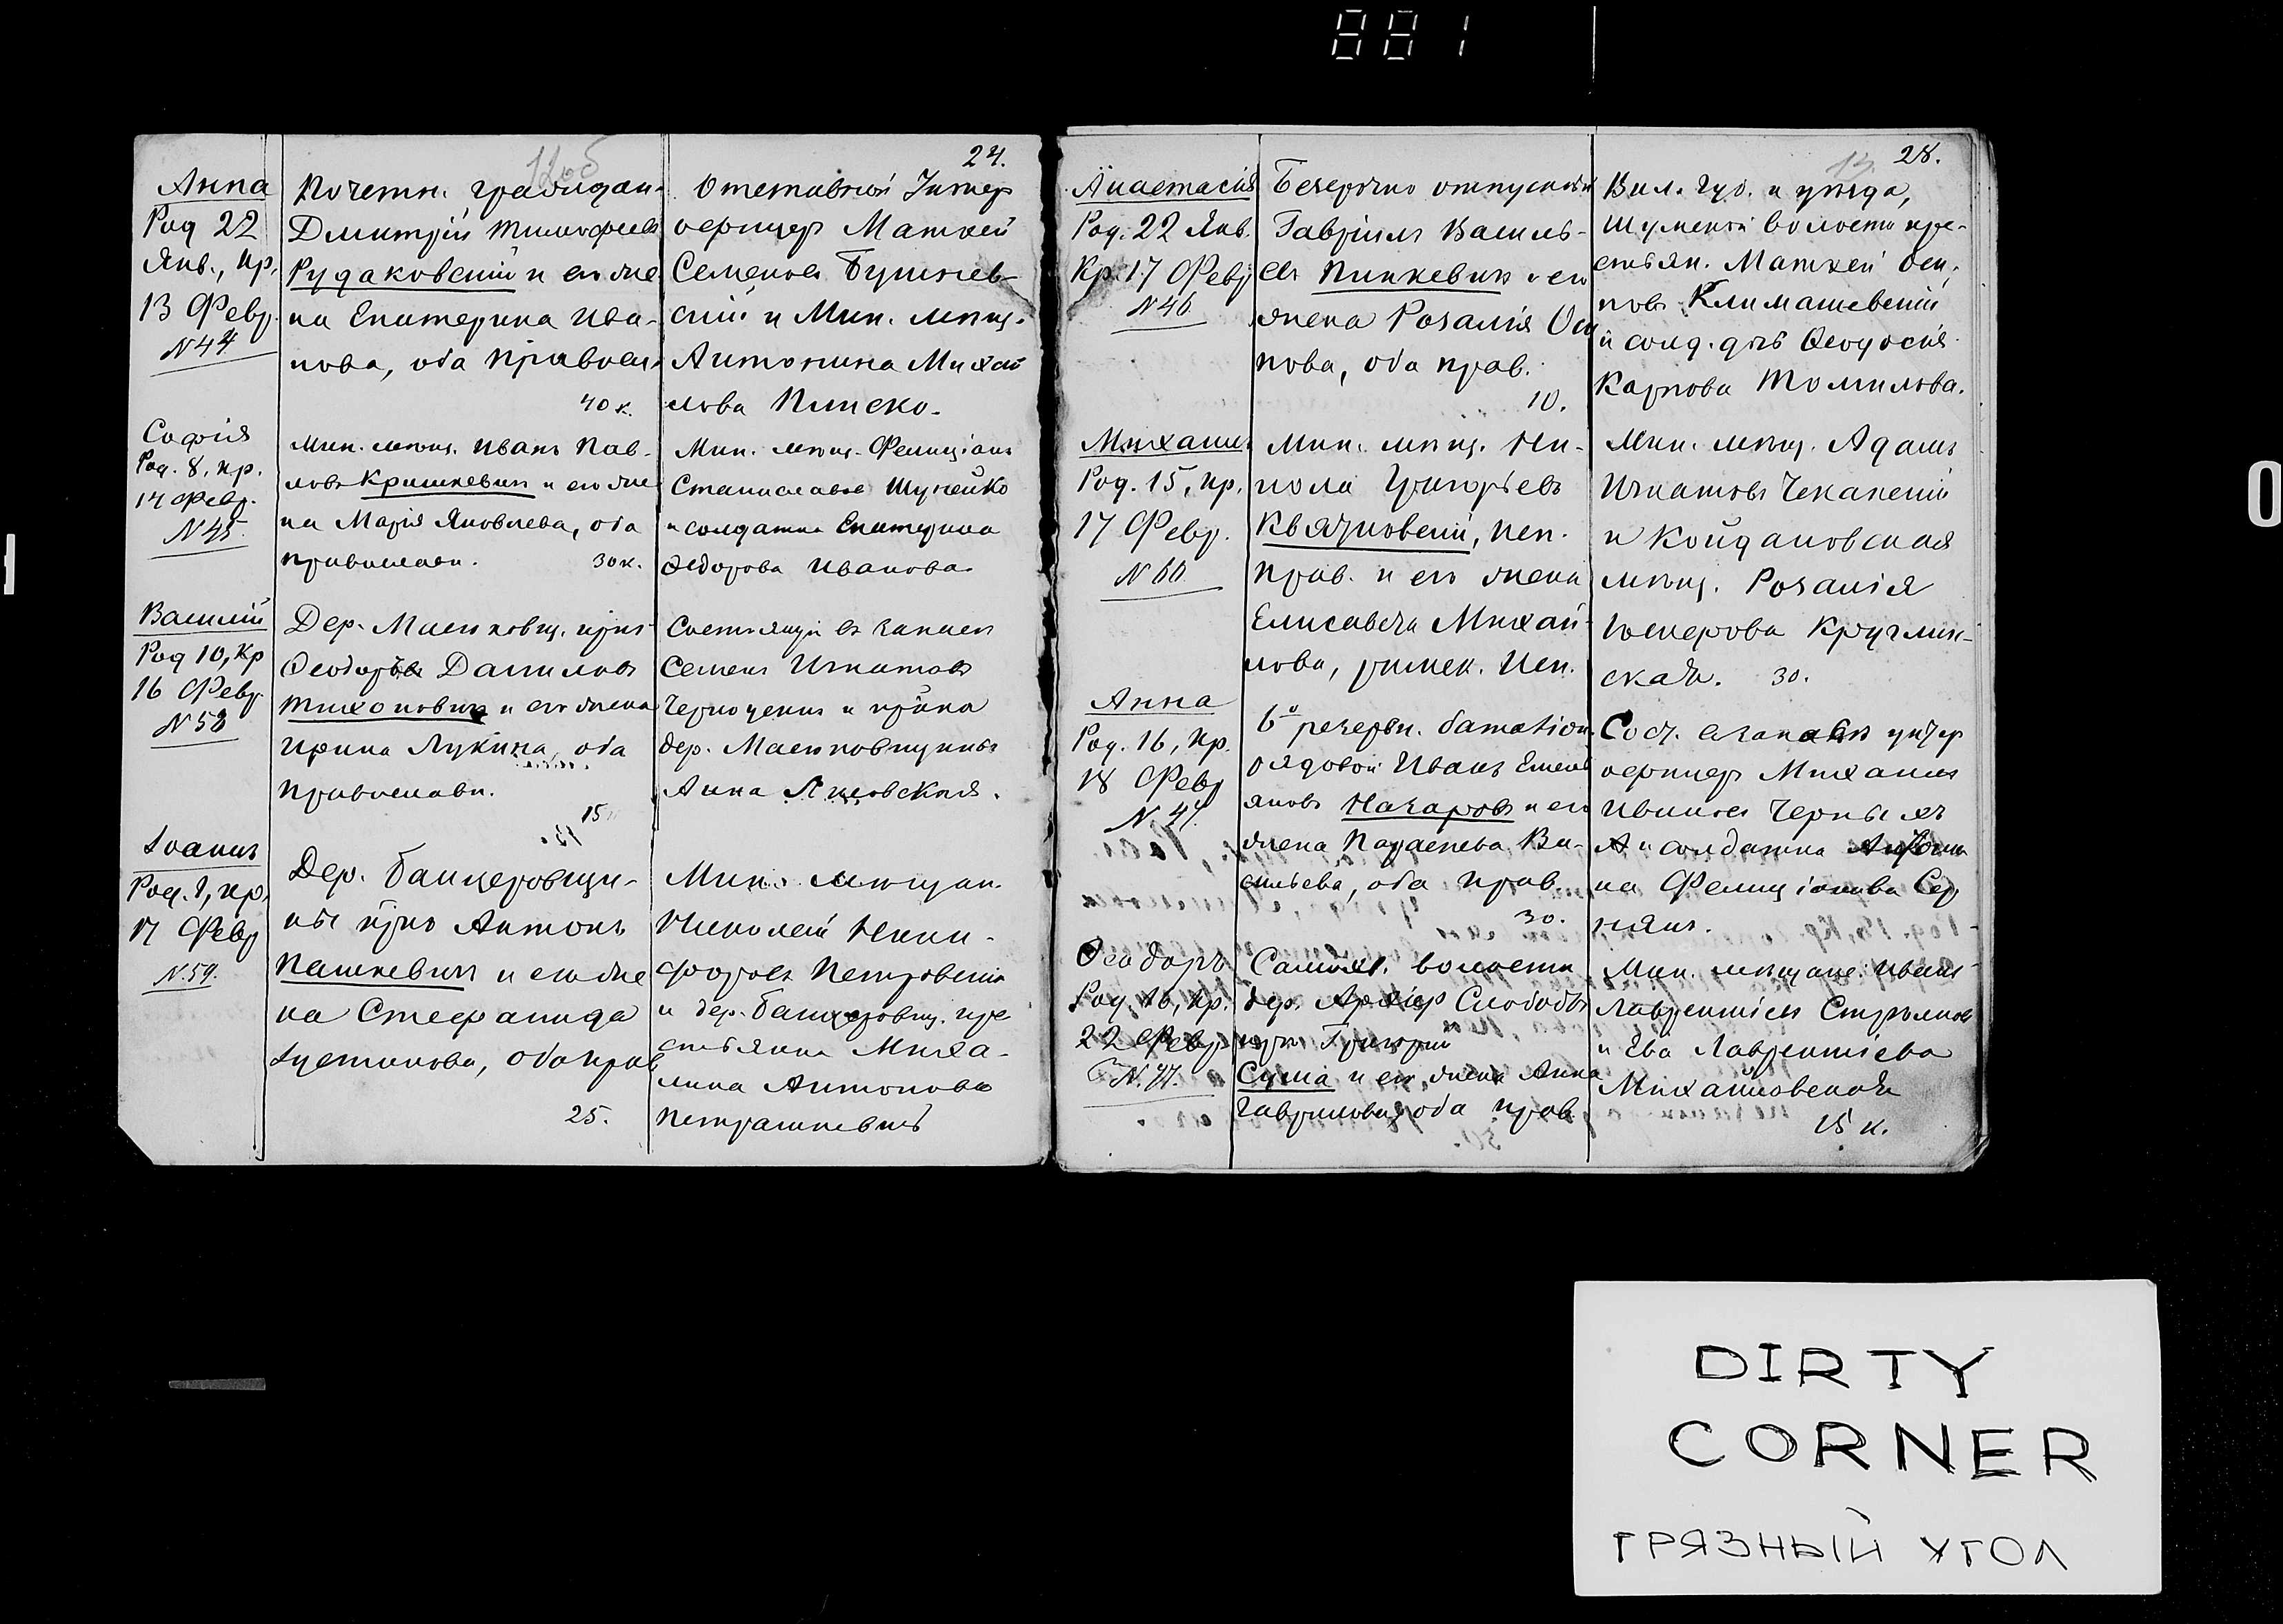 881
24.
Анна
Род 22
Янв., кр.
13 Февр.
N 44
Почетн. граждан.
Дмитрій Тимофеевъ
Рудаковскій и его же
на Екатерина Ива-
нова, оба правосл.
40 к.
Отставной Унтер
офицеръ Матвей
Семеновъ
скій и Мин. мѣщ.
Антонина Михай
лова
Софія
Род. 8, кр.
14 Февр.
N 45.
Мин. мѣщ. Иванъ Пав-
ловъ Кришкевичъ и его же
на Марія Яковлева, оба
православн. 30 к.
Мин. мѣщ. Фелиціанъ
Станиславовъ Шунейко
и солдатка Екатерина
Федорова Иванова
Василій
Род 10, Кр
16 Февр.
N 58
Дер. крест
Ѳеодоръ Даниловъ
Тихоновичъ и его жена
Ирина Лукина, оба
православн.
15
Состоящій въ запасѣ
Семенъ Игнатовъ
и крѣка
дер.
Анна
Іоаннъ
Род. 7, кр.
17 Февр
N 59.
Дер. Банцеровщи-
ны крес Антонъ
Пашкевичъ и его же
на Стефанида
Іустинова, оба прав
25.
Мин. мѣщан.
Николай Ники-
форовъ Петровскій
и дер. Банцеровщ. кре
стьянка Миха-
лина Антонова
Петрашкевичъ
28.
13
Анастасія
Род. 22 Янв.
Кр. 17 Февр
N 46.
Безсрочно отпускной
Гавріилъ Василь-
евъ Пинкевичъ и его
жена Розалія Оси
пова, оба прав.
10.
Вил. губ. и уѣзда,
Шумской волости кре-
стьян. Матвей Оси,
повъ Климашевскій
и солд. дочь Ѳеодосія
Карпова Томилова.
Михаилъ
Род. 15, кр.
17 Февр.
N 60
Мин. мѣщ. Ни-
колай Григорьевъ
Квятковскій, исп.
прав. и его жена
Елисавета Михай-
лова, римск. исп.
Мин. мѣщ. Адамъ
Игнатовъ Чеканскій
и Койдановская
мѣщ. Розалія
Іосифова Круглин-
ская. 30.
Анна
Род. 16, кр.
18 Февр
N 47.
6й резервн. баталіон.
рядовой Иванъ Емель
яновъ Назаровъ и его
жена Параскева Ва-
сильева, оба прав
30.
Сост. въ запасѣ унтер
офицеръ Михаилъ
Ивановъ Черныхъ
и солдатка
на Фелиціанова Сер
Ѳеодоръ
Род. 16, кр.
22 Февр
N. 77.
волости
дер. Слобода
крес Григорій
Сума и его жена Анна
Гаврилова, оба прав
Мин. мѣщане Иванъ
Лаврентіевъ
и Ева Лаврентіева
Михайловская
15 к.
DIRTY
CORNER
ГРЯЗНЫЙ УГОЛ